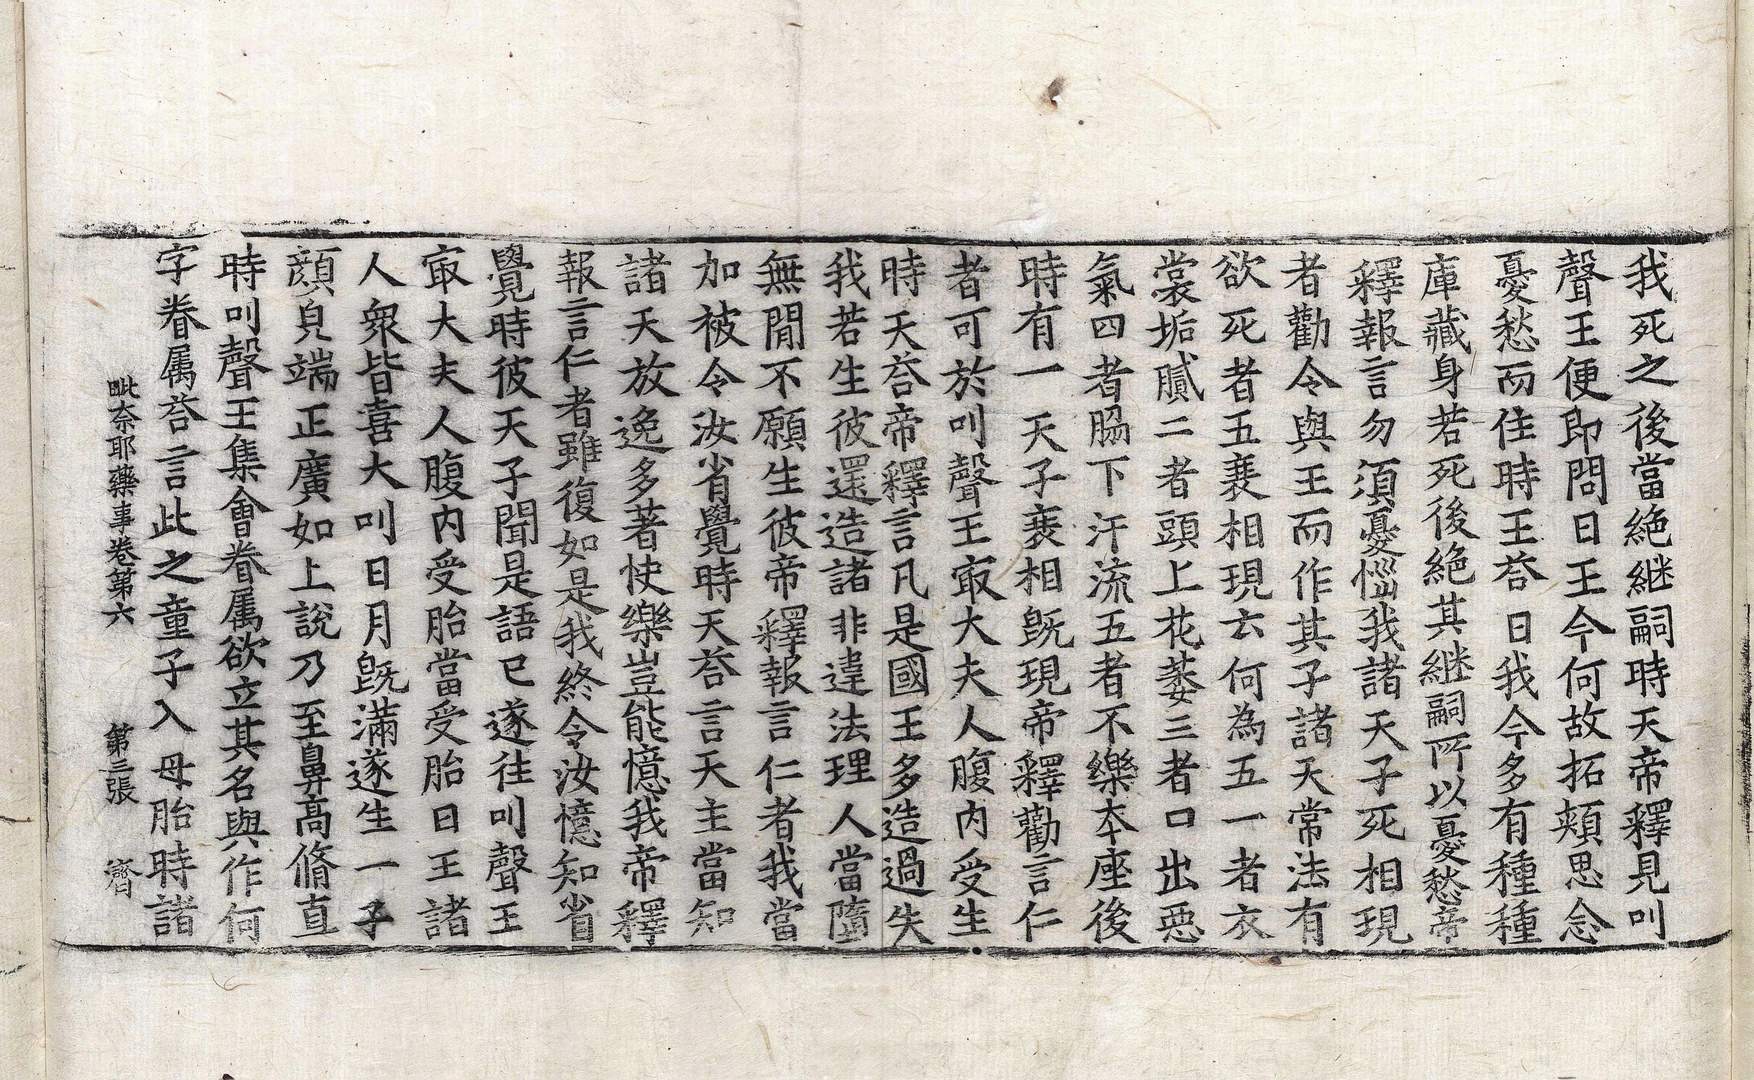 我死之後當絶継嗣時天帝釋見叫
聲王便即問日王今何故拓頰思念
憂愁而住時王荅日我今多有種種
庫藏身若死後絶其継嗣所以憂愁帝
釋報言勿須憂惱我諸天子死相現
者勸令與王而作其子諸天常法有
欲死者五衰相現云何為五一者衣
裳垢膩二者頭上花萎三者口出惡
氣四者脇下汗流五者不樂夲座後
時有一天子衰相旣現帝釋勸言仁
者可於叫聲王㝡大夫人腹内受生
時天荅帝釋言凡是國王多造過失
我若生彼還造諸非違法理人當墮
無間不願生彼帝釋報言仁者我當
加被令汝省覺時天荅言天主當知
諸天放逸多著快樂豈能憶我帝釋
報言仁者雖復如是我終令汝憶知省
覺時彼天子聞是語已遂往叫聲王
㝡大夫人腹内受胎當受胎日王諸
人衆皆喜大叫日月旣滿遂生一子
顔皃端正廣如上說乃至鼻髙脩直
時叫聲王集會眷属欲立其名與作何
字眷属荅言此之童子入母胎時諸
毗奈耶藥事卷第六 第三張 濟